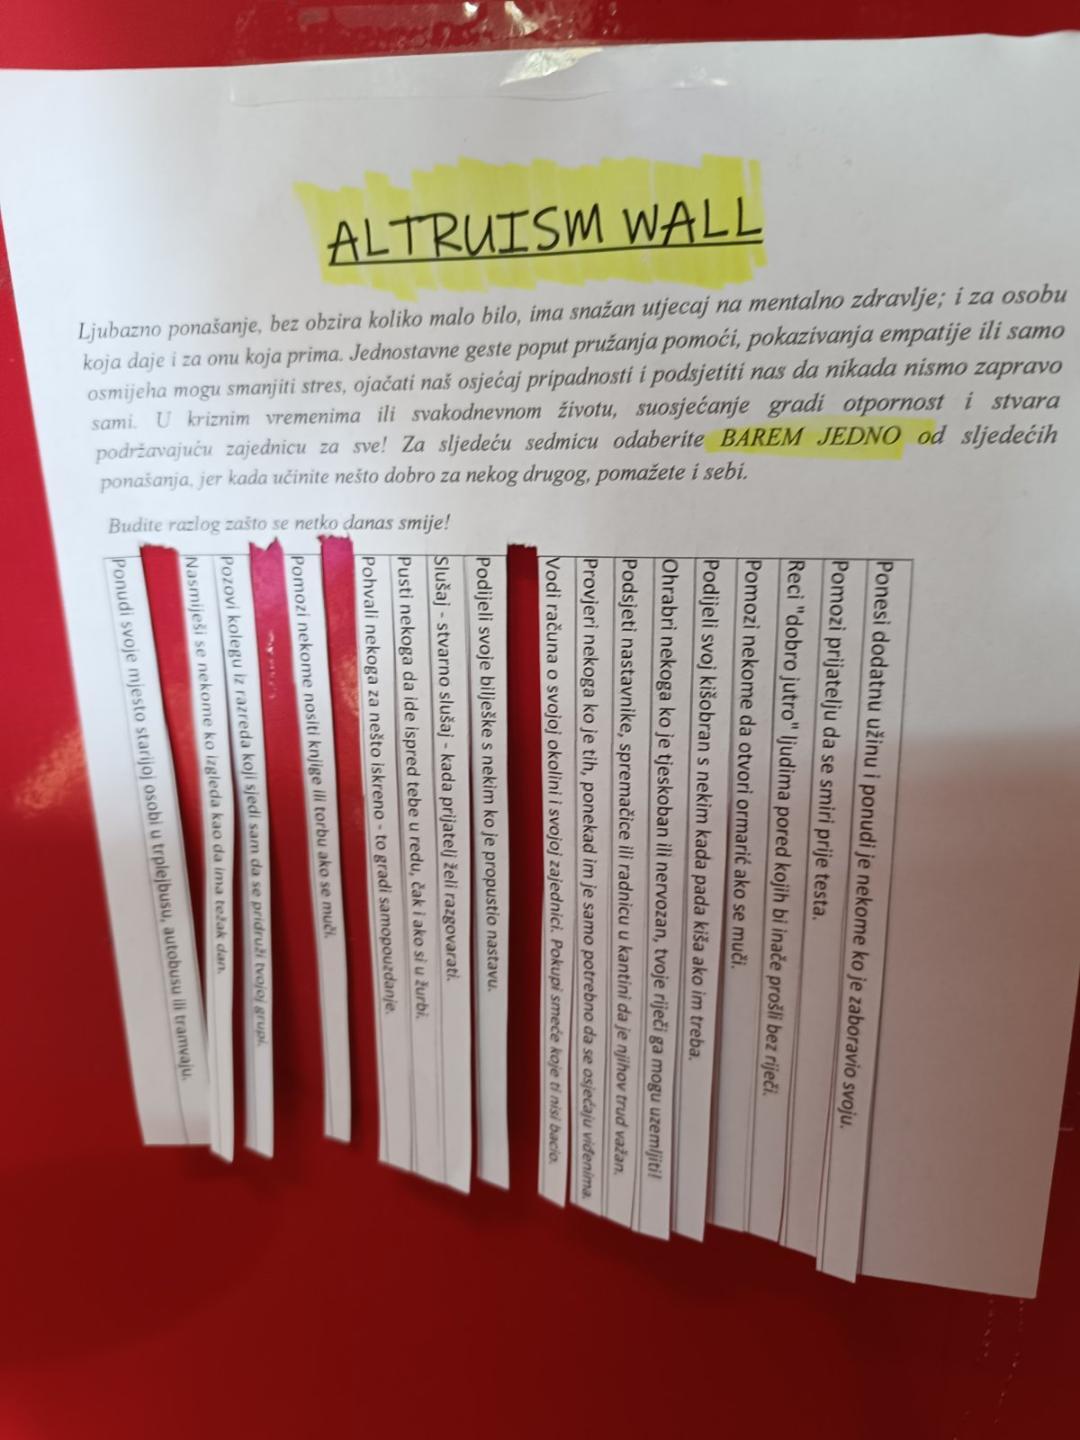 ALTRUISM WALL
Ljubazno ponašanje, bez obzira koliko malo bilo, ima snažan utjecaj na mentalno zdravlje; i za osobu
koja daje i za onu koja prima. Jednostavne geste poput pružanja pomoći, pokazivanja empatije ili samo
osmijeha mogu smanjiti stres, ojačati naš osjećaj pripadnosti i podsjetiti nas da nikada nismo zapravo
sami. U kriznim vremenima ili svakodnevnom životu, suosjećanje gradi otpornost i stvara
podržavajuću zajednicu za sve! Za sljedeću sedmicu odaberite BAREM JEDNO od sljedećih
ponašanja, jer kada učinite nešto dobro za nekog drugog, pomažete i sebi.
Budite razlog zašto se netko danas smije!
Ponudi svoje mjesto starijoj osobi u trplejbusu, autobusu ili tramvaju.
Nasmiješi se nekome ko izgleda kao da ima težak dan.
Pozovi kolegu iz razreda koji sjedi sam da se pridruži tvojoj grupi.
Pomozi nekome nositi knjige ili torbu ako se muči.
Pohvali nekoga za nešto iskreno - to gradi samopouzdanje.
Pusti nekoga da ide ispred tebe u redu, čak i ako si u žurbi.
Slušaj - stvarno slušaj - kada prijatelj želi razgovarati.
Podijeli svoje bilješke s nekim ko je propustio nastavu.
Vodi računa o svojoj okolini i svojoj zajednici. Pokupi smeće koje ti nisi bacio.
Provjeri nekoga ko je tih, ponekad im je samo potrebno da se osjećaju viđenima.
Podsjeti nastavnike, spremačice ili radnicu u kantini da je njihov trud važan.
Ohrabri nekoga ko je tjeskoban ili nervozan, tvoje riječi ga mogu uzemljiti!
Podijeli svoj kišobran s nekim kada pada kiša ako im treba.
Pomozi nekome da otvori ormarić ako se muči.
Reci "dobro jutro" ljudima pored kojih bi inače prošli bez riječi.
Pomozi prijatelju da se smiri prije testa.
Ponesi dodatnu užinu i ponudi je nekome ko je zaboravio svoju.